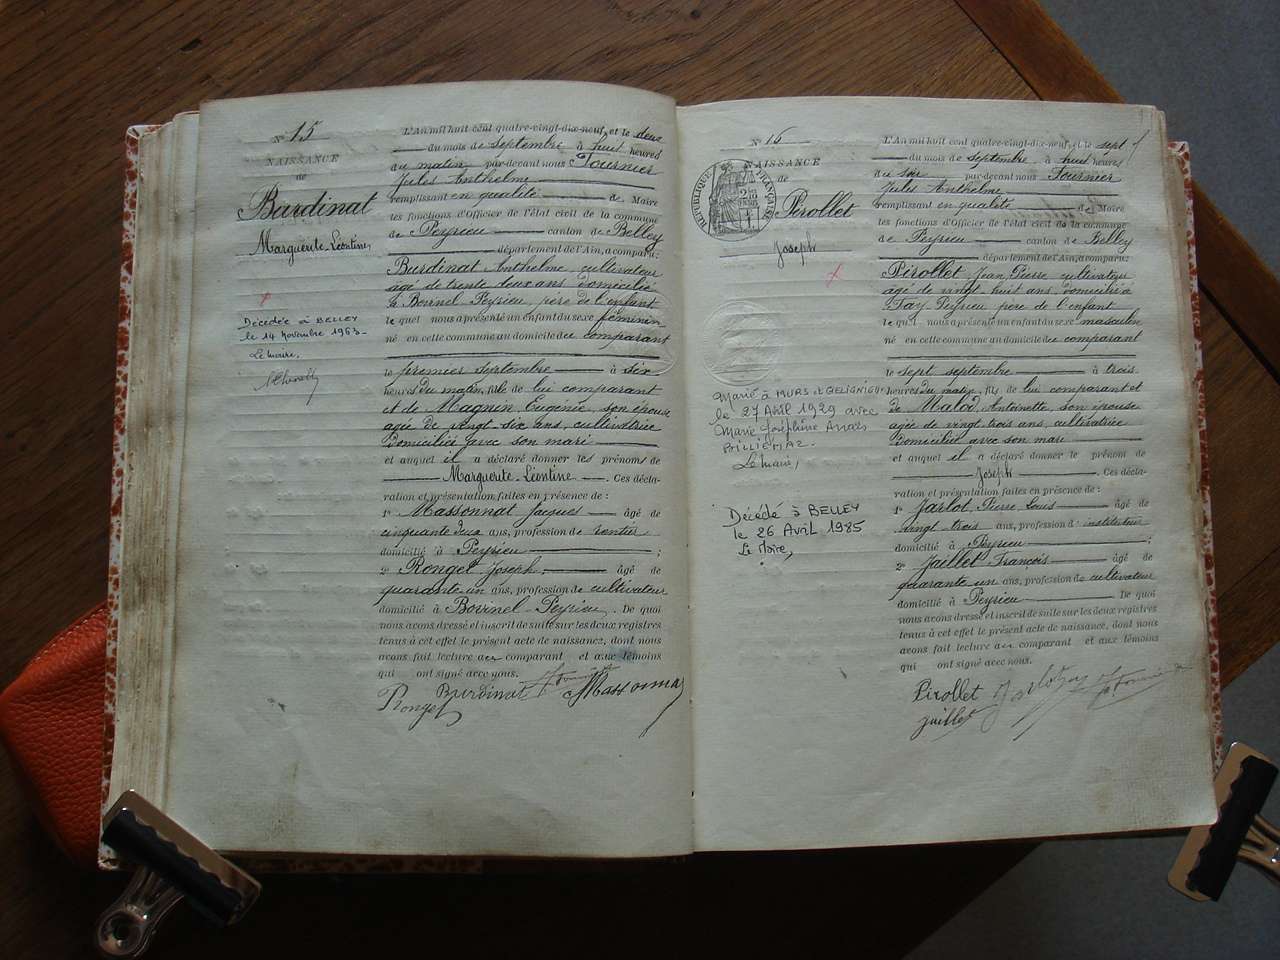 N° 15
NAISSANCE
de
Burdinat
Marguerite Léontine
Décédée à BELLEY
le 14 Novembre 1963
Le Maire,
L'An mil huit cent quatre-vingt-dix-neuf, et le deux
du mois de septembre à huit heures
du matin par-devant nous Fournier
Jules Anthelme
remplissant en qualité de Maire
les fonctions d'Officier de l'état civil de la commune
de Peyrieu canton de Belley
département de l'Ain, a comparu:
Burdinat Anthelme, cultivateur
âgé de trente deux ans, domicilié
à Bovinel Peyrieu, père de l'enfant
lequel nous a présenté un enfant du sexe féminin
né en cette commune au domicile du comparant
le premier septembre à six
heures du matin, fille de lui comparant
et de Magnin Eugénie, son épouse
agée de vingt six ans, cultivatrice
domiciliée avec son mari
et auquel il a déclaré donner les prénoms de
Marguerite Léontine. Ces décla-
ration et présentation faites en présence de :
1° Massonnat Jacques âgé de
cinquante deux ans, profession de rentier
domicilié à Peyrieu ;
2° Ronget Joseph âgé de
quarante un ans, profession de cultivateur
domicilié à Bovinel Peyrieu. De quoi
nous avons dressé et inscrit de suite sur les deux registres
tenus à cet effet le présent acte de naissance, dont nous
avons fait lecture au comparant et aux témoins
qui ont signé avec nous.
Burdinat Fournier Massonnat
Ronget
N° 16
NAISSANCE
de
RÉPUBLIQUE FRANÇAISE
Pérollet
Joseph
Marié à MURS et GELIGNIEUX
le 27 Avril 1929 avec
Marie Joséphine Anaïs
Le Maire,
Décédé à BELLEY
le 26 Avril 1985
Le Maire,
L'An mil huit cent quatre-vingt-dix-neuf, et le sept
du mois de septembre à huit heures
du soir par-devant nous Fournier
Jules Anthelme
remplissant en qualité de Maire
les fonctions d'Officier de l'état civil de la commune
de Peyrieu canton de Belley
département de l'Ain, a comparu:
Pérollet, Jean Pierre, cultivateur
âgé de vingt huit ans, domicilié à
Fay, Peyrieu, père de l'enfant
lequel nous a présenté un enfant du sexe masculin
né en cette commune au domicile du comparant
le sept septembre à trois
heures du matin, fils de lui comparant et
de Malod, Antoinette, son épouse
agée de vingt trois ans, cultivatrice
domiciliée avec son mari
et auquel il a déclaré donner le prénom de
Joseph. Ces décla-
ration et présentation faites en présence de :
1° Jarlot, Pierre Louis âgé de
vingt trois ans, profession d'instituteur
domicilié à Peyrieu ;
2° Juillet François âgé de
quarante un ans, profession de cultivateur
domicilié à Peyrieu De quoi
nous avons dressé et inscrit de suite sur les deux registres
tenus à cet effet le présent acte de naissance, dont nous
avons fait lecture au comparant et aux témoins
qui ont signé avec nous.
Pérollet Jarlot Fournier
Juillet